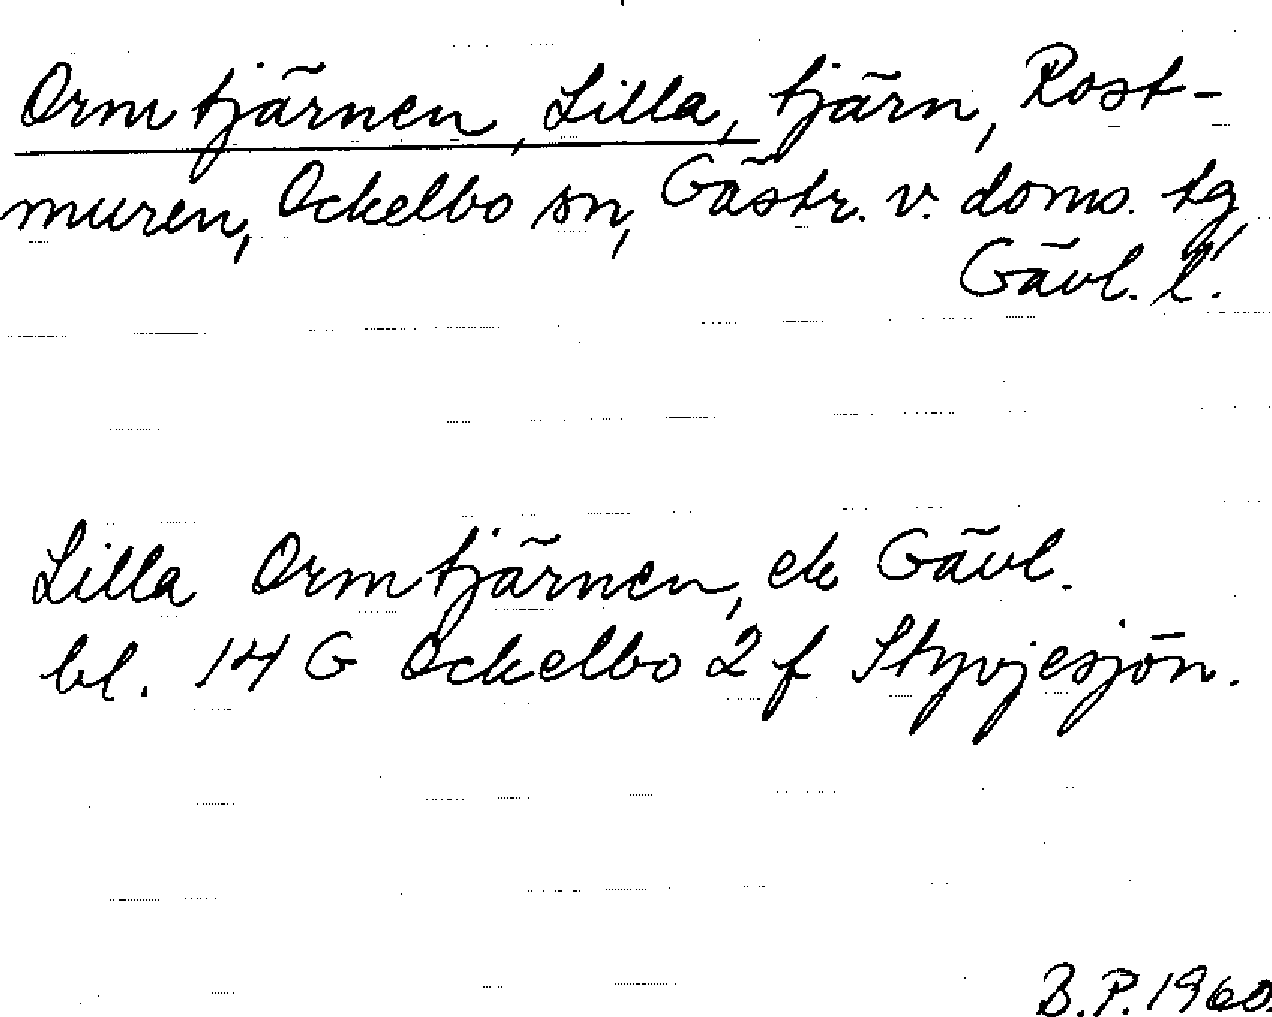 Ormtjärnen, Lilla, tjärn, Rost-
muren, Ockelbo sn, Gästr. v. doms. tg,
Gävl. l.
Lilla Ormtjärnen, ek Gävl.
bl. 14 G Ockelbo 2 f Styvjesjön.
B.P. 1960.